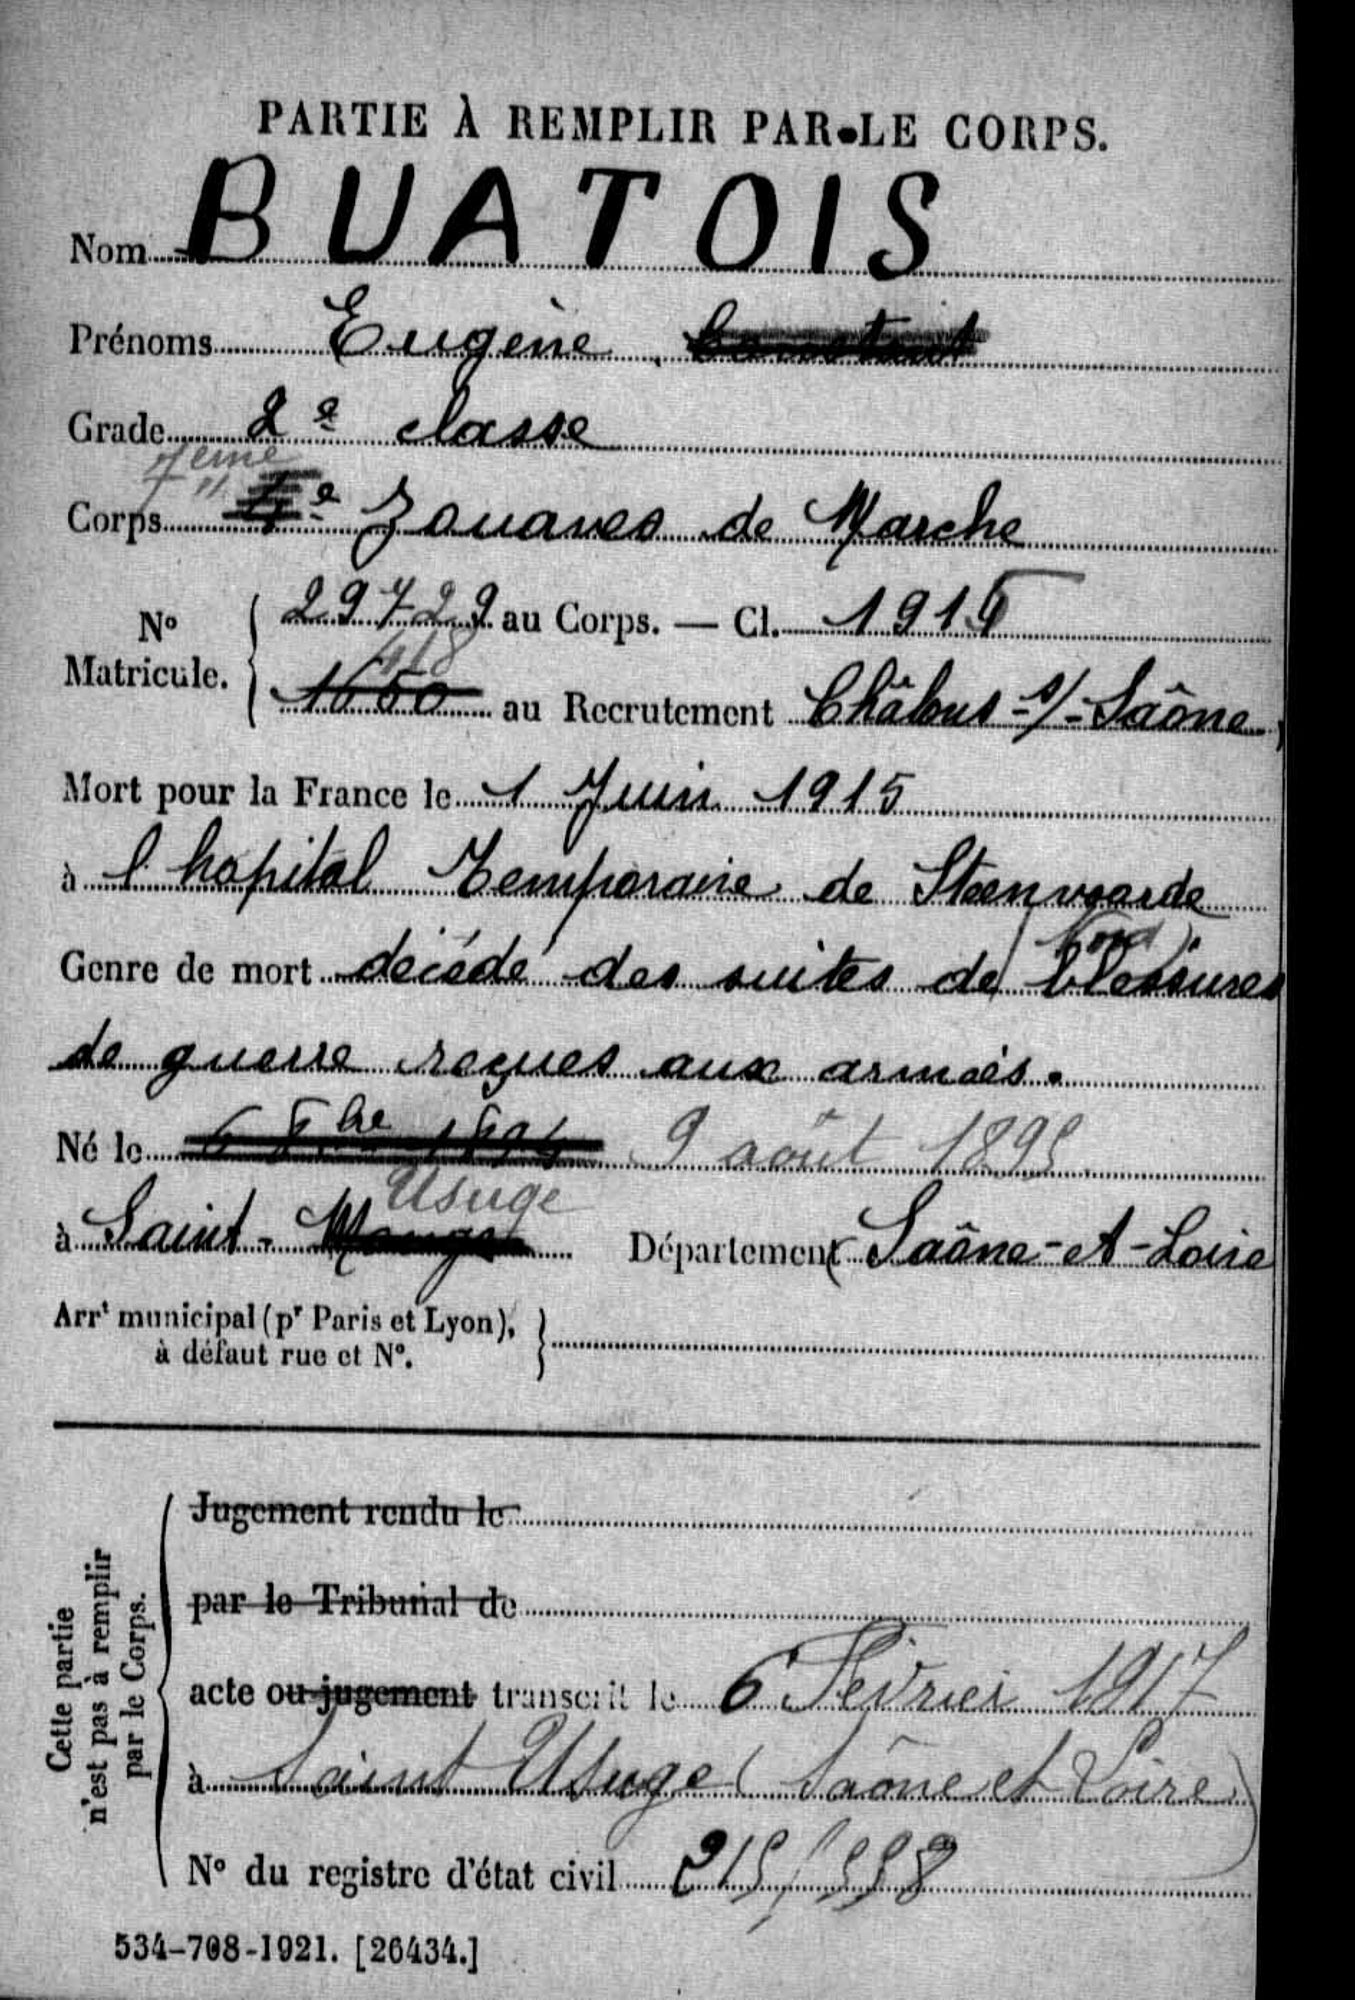 PARTIE À REMPLIR PAR LE CORPS.
Nom BUATOIS
Prénoms Eugène Constant
Grade 2e classe
7eme
Corps 4e Zouaves de Marche
No Matricule. 29729 au Corps. — Cl. 1915
418
1650 au Recrutement Châlons-s/-Saône
Mort pour la France le 1 Juin 1915
à l'hopital Temporaire de Steenvoorde
(Nord).
Genre de mort décédé des suites de blessures
de guerre reçues aux armées.
Né le 6 8bre 1894 9 août 1895
Usuge
à Saint- Département Saône-et-Loire
Arrt municipal (pr Paris et Lyon),
à défaut rue et No.
Cette partie
n'est pas à remplir
par le Corps.
Jugement rendu le
par le Tribunal de
acte ou jugement transcrit le 6 Février 1917
à Saint Usuge (Saône et Loire)
No du registre d'état civil
534-708-1921. [26434.]